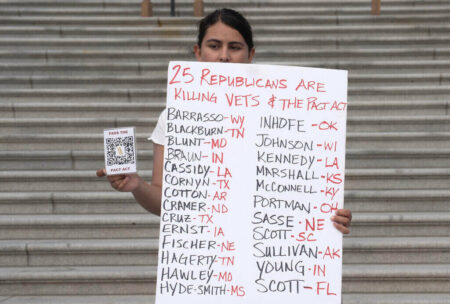 25 REPUBLICANS ARE
KILLING VETS & THE PACT ACT
BARRASSO-WY
BLACKBURN-TN
BLUNT-MO
BRAUN-IN
CASSIDY-LA
CORNYN-TX
COTTON-AR
CRAMER-ND
CRUZ-TX
ERNST-IA
FISCHER-NE
HAGERTY-TN
HAWLEY-MO
HYDE-SMITH-MS
INHOFE-OK
JOHNSON-WI
KENNEDY-LA
MARSHALL-KS
MCCONNELL-KY
PORTMAN-OH
SASSE-NE
SCOTT-SC
SULLIVAN-AK
YOUNG-IN
SCOTT-FL
PASS THE
PACT ACT